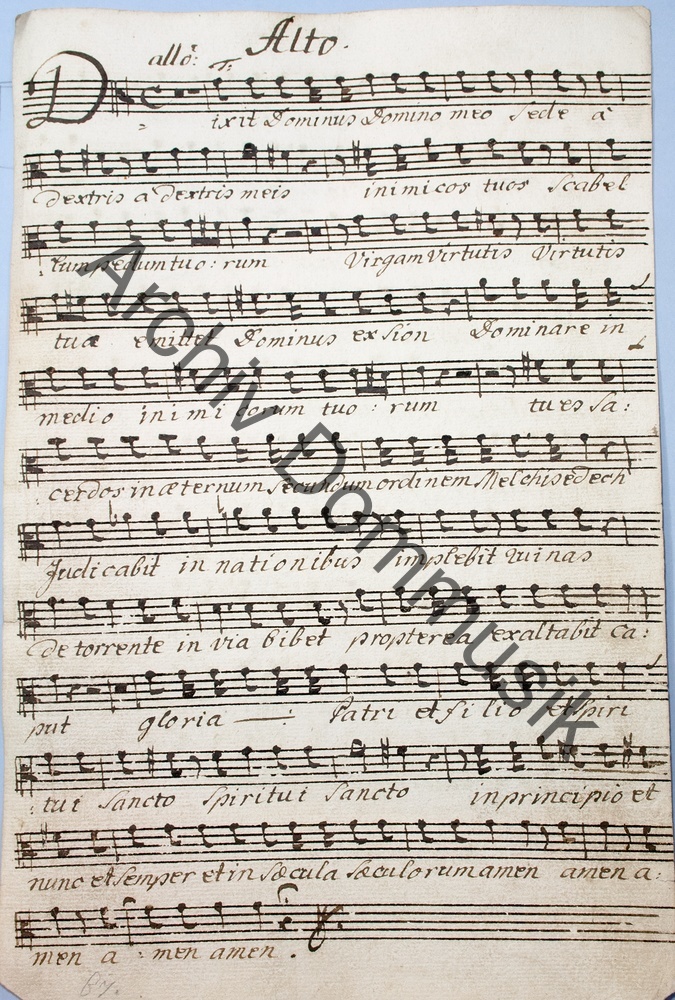 Alto.
allo: T:
Dixit Dominus Domino meo sede a
dextris a dextris meis inimicos tuos scabel
lum pedum tuo: rum Virgam virtutis virtutis
tuæ emittet Dominus ex Sion Dominare in
medio inimi corum tuo: rum tu es Sa:
cerdos in æternum secundum ordinem Melchisedech
Judicabit in nationibus implebit ruinas
de torrente in via bibet propterea exaltabit ca:
put gloria —: Patri et filio et Spiri
: tui Sancto Spiritui Sancto in principio et
nunc et semper et in Sæcula Sæculorum amen amen a:
men a: men amen.
Archiv Dommusik